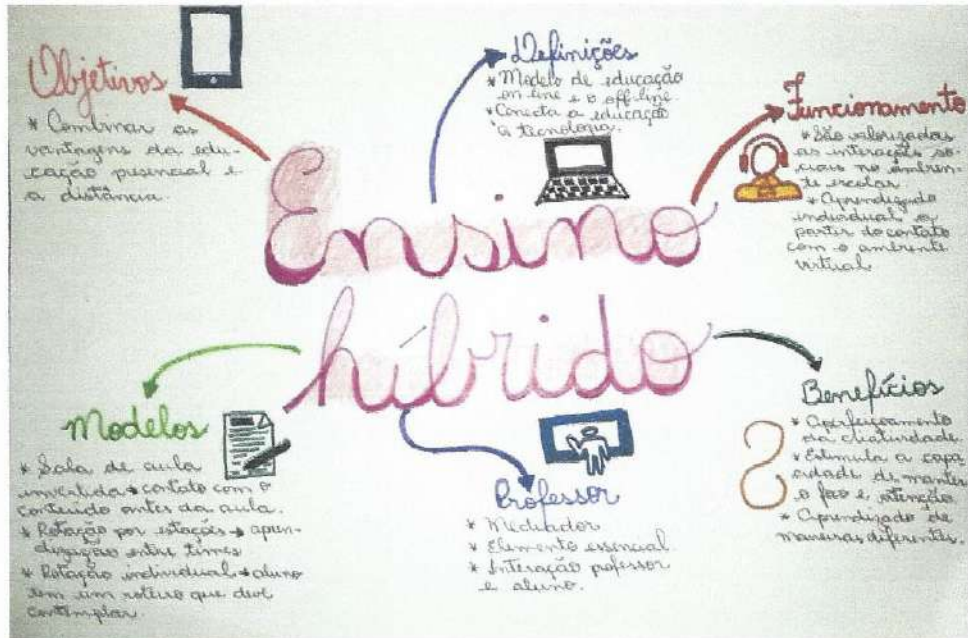 Objetivos
* Combinar as
vantagens da edu-
cação presencial e
a distância.
Definições
* Modelo de educação
on-line e o off-line.
* Conecta a educação
à tecnologia.
Funcionamento
* São valorizadas
as interações so-
ciais no ambien-
te escolar
* Aprendizado
individual a
partir do contato
com o ambiente
virtual
Ensino
híbrido
Modelos
* Sala de aula
invertida → contato com o
conteúdo antes da aula.
* Rotação por estações → apren-
dização entre times
* Rotação individual → aluno
tem um roteiro que deve
contemplar.
Professor
* Mediador
* Elemento essencial.
* Interação professor
e aluno.
Benefícios
* Aperfeiçoamento
da criatividade.
* Estimula a capa
cidade de manter
o foco e atenção.
* Aprendizado de
maneiras diferentes.